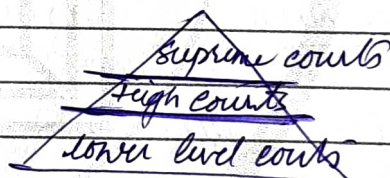 supreme courts
High courts
lower level courts